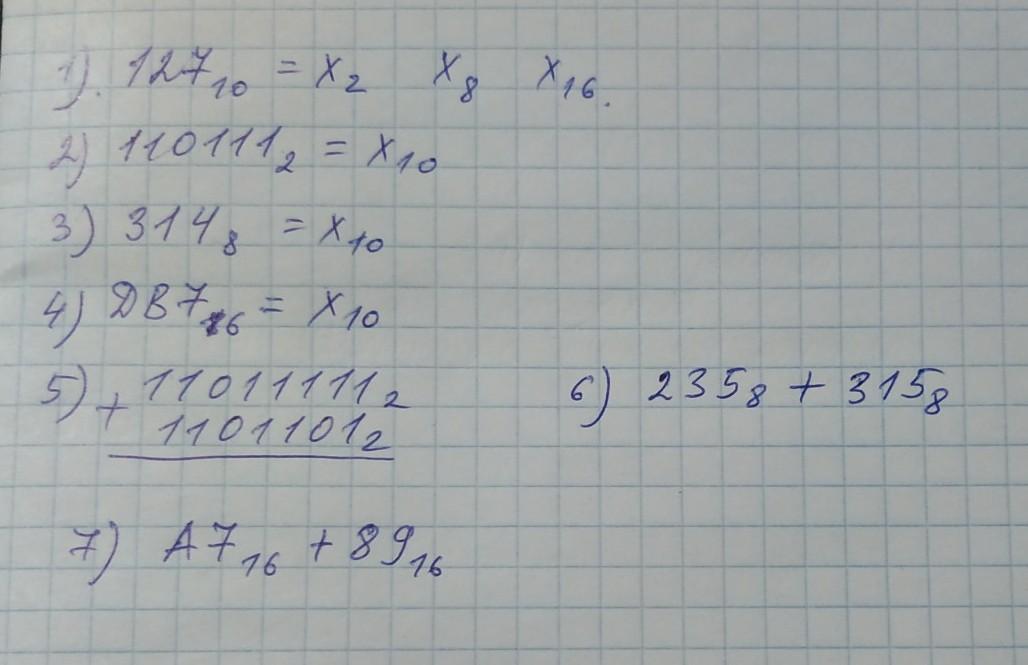 1). 127₁₀ = x₂ x₈ x₁₆.
2) 110111₂ = x₁₀
3) 314₈ = x₁₀
4) ДВ7₁₆ = x₁₀
5) + 11011111₂
1101101₂
6) 235₈ + 315₈
7) А7₁₆ + 89₁₆